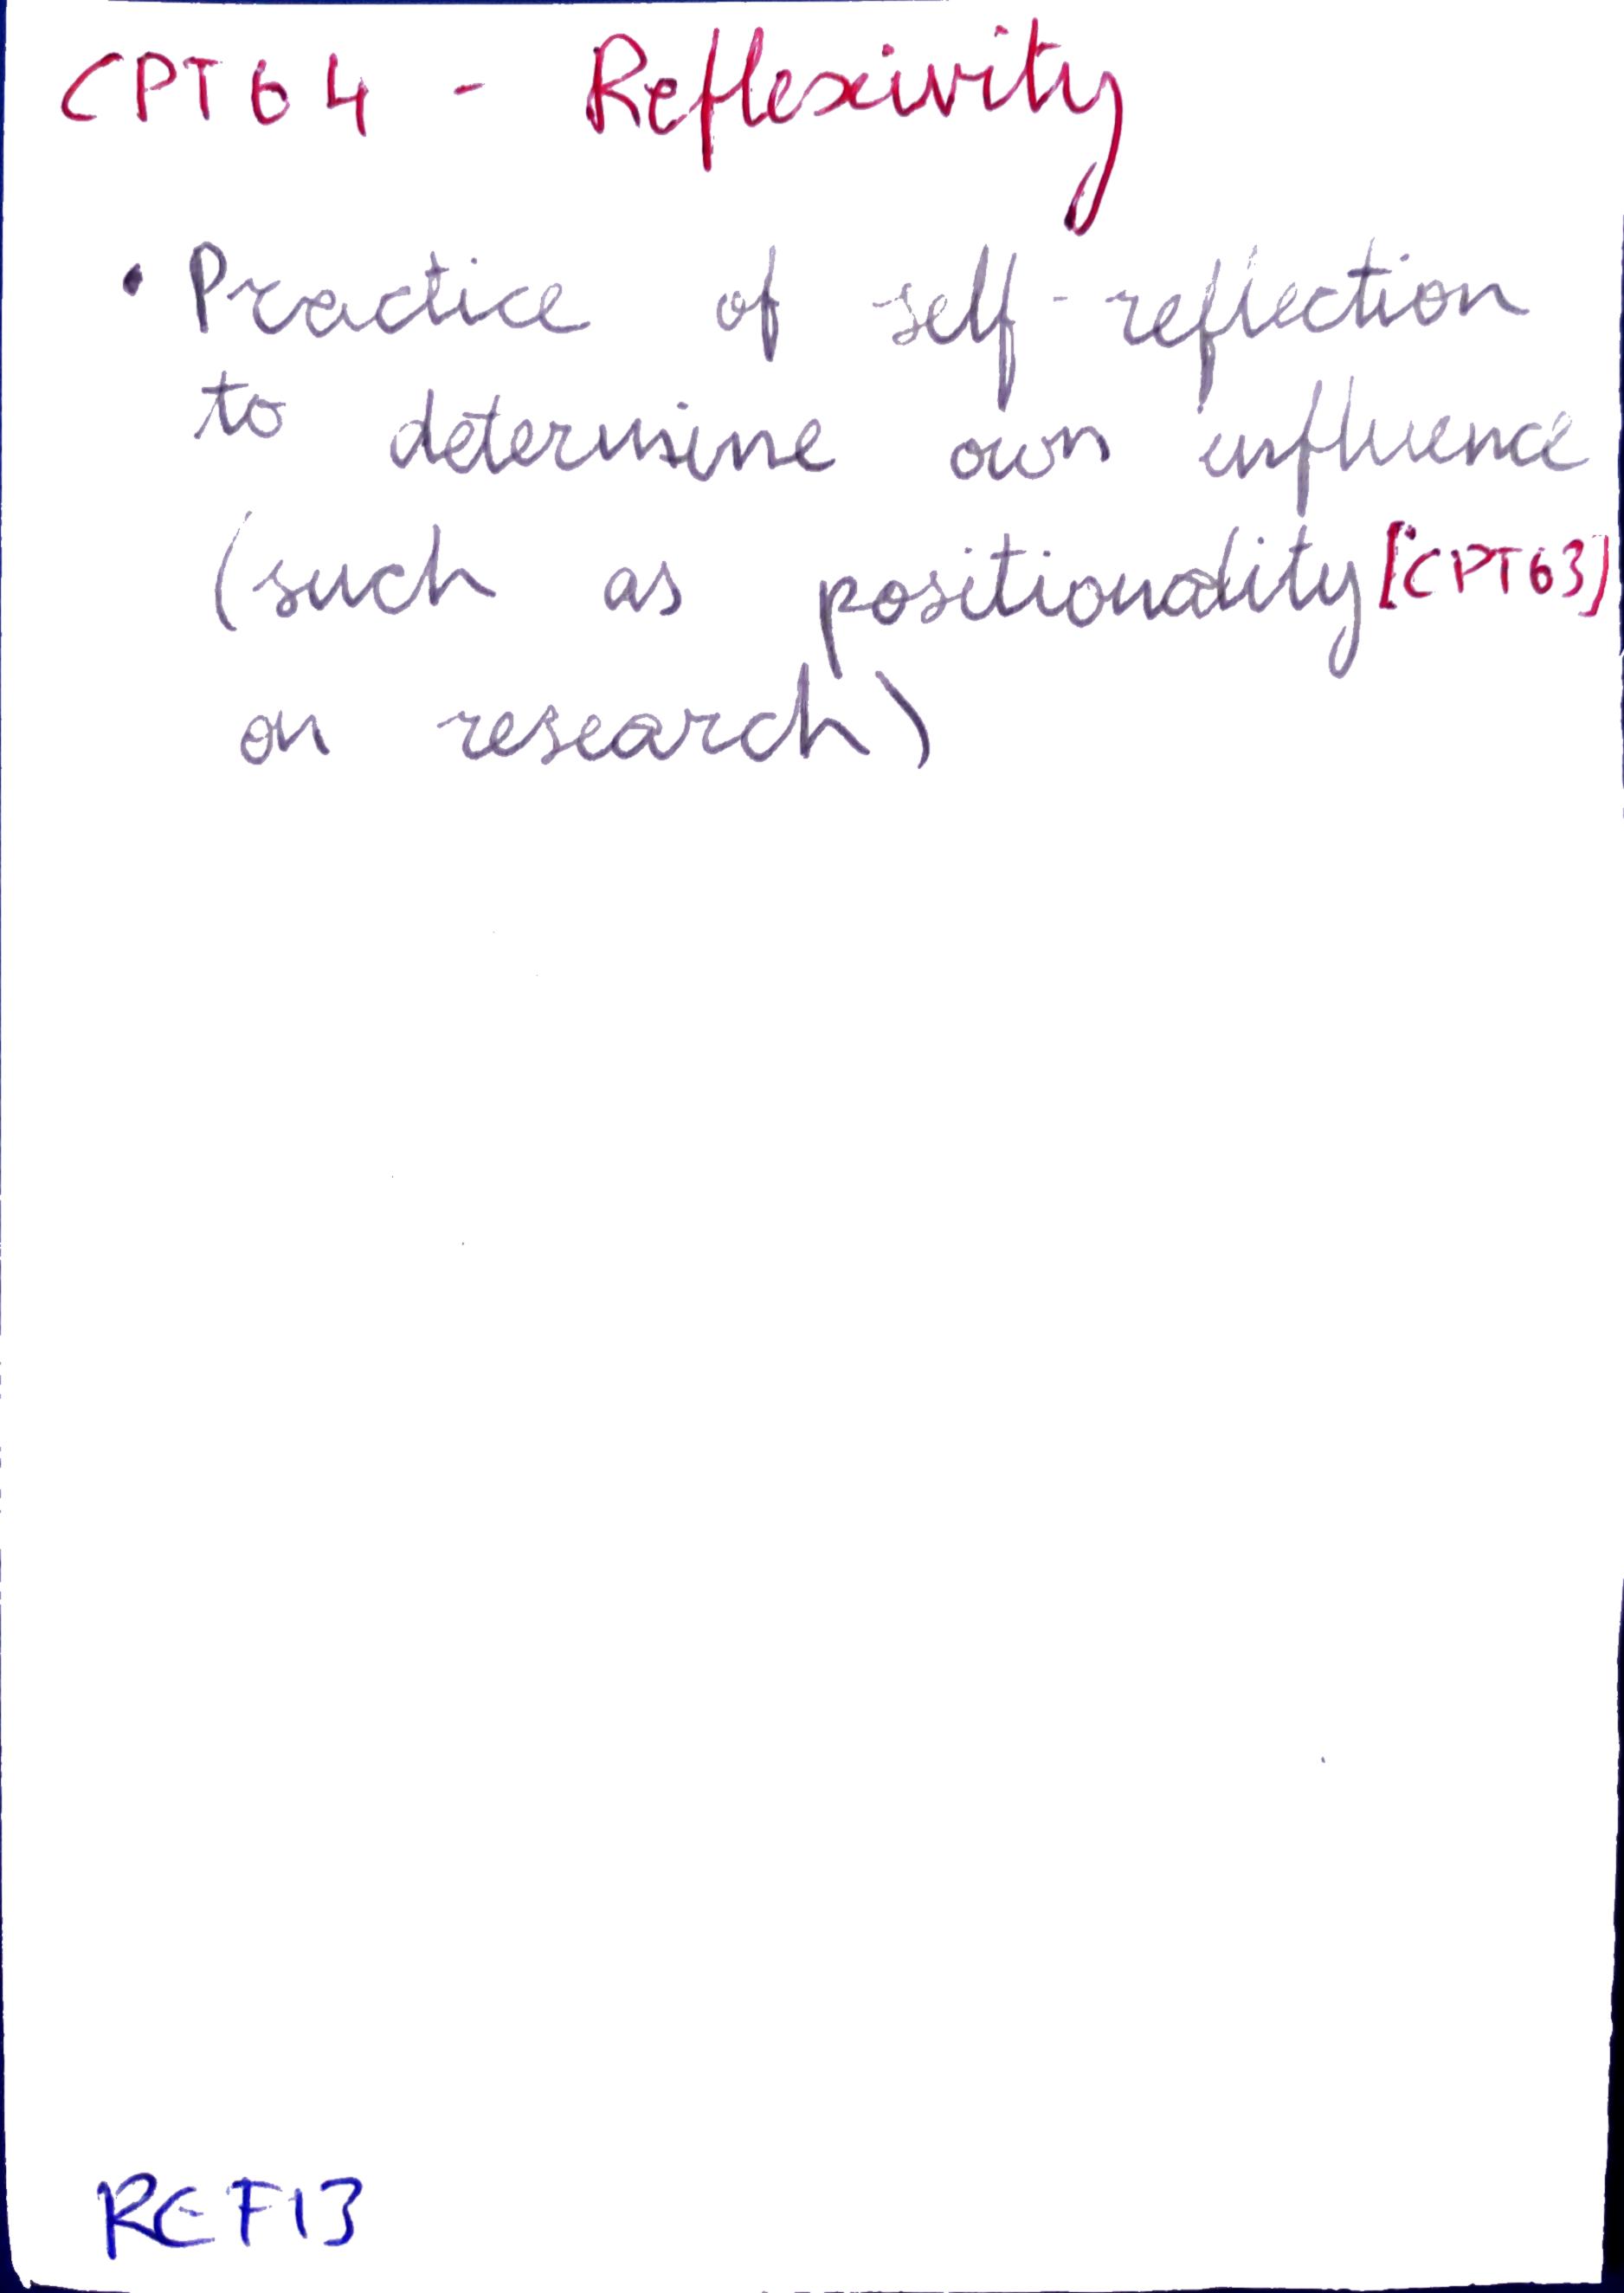 CPT64 - Reflexivity
• Practice of self-reflection
to determine own influence
(such as positionality [CPT63]
on research)
REF13